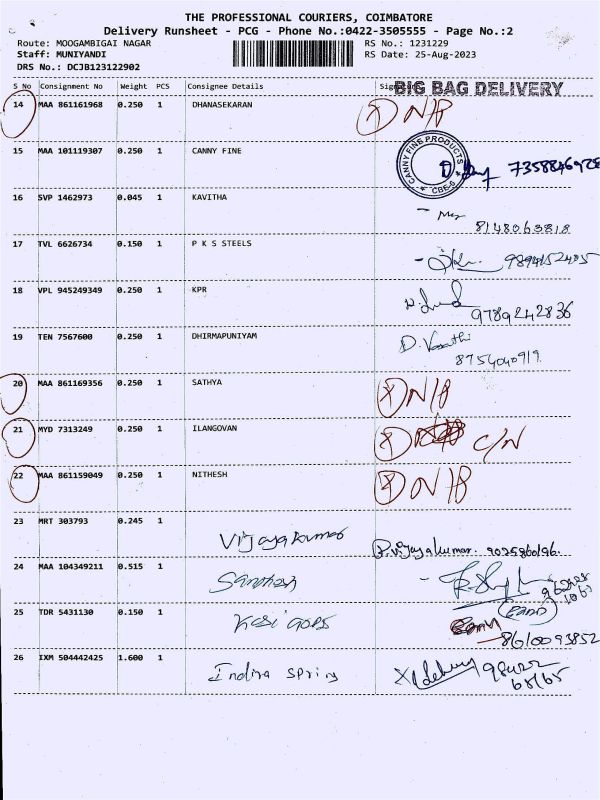 THE PROFESSIONAL COURIERS, COIMBATORE
Delivery Runsheet - PCG - Phone No.:0422-3505555 - Page No.:2
Route: MOOGAMBIGAI NAGAR RS No.: 1231229
Staff: MUNIYANDI RS Date: 25-Aug-2023
DRS No.: DCJB123122902
S No Consignment No Weight PCS Consignee Details BIG BAG DELIVERY
14 MAA 861161968 0.250 1 DHANASEKARAN
15 MAA 101119307 0.250 1 CANNY FINE CANNY FINE PRODUCTS CBE-6 7358846928
16 SVP 1462973 0.045 1 KAVITHA
8148063818
17 TVL 6626734 0.150 1 P K S STEELS
9894152405
18 VPL 945249349 0.250 1 KPR
9789242836
19 TEN 7567600 0.250 1 DHIRMAPUNIYAM
20 MAA 861169356 0.250 1 SATHYA
21 MYD 7313249 0.250 1 ILANGOVAN C/N
22 MAA 861159049 0.250 1 NITHESH
23 MRT 303793 0.245 1
Vijayakumar P.vijayakumar. 9025860196
24 MAA 104349211 0.515 1
25 TDR 5431130 0.150 1
8610093852
26 IXM 504442425 1.600 1
Indira Spring 98422
68165